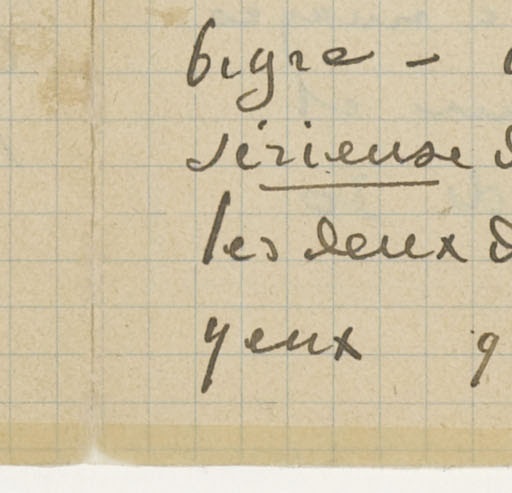 bigre -
sérieuse
les deux
yeux